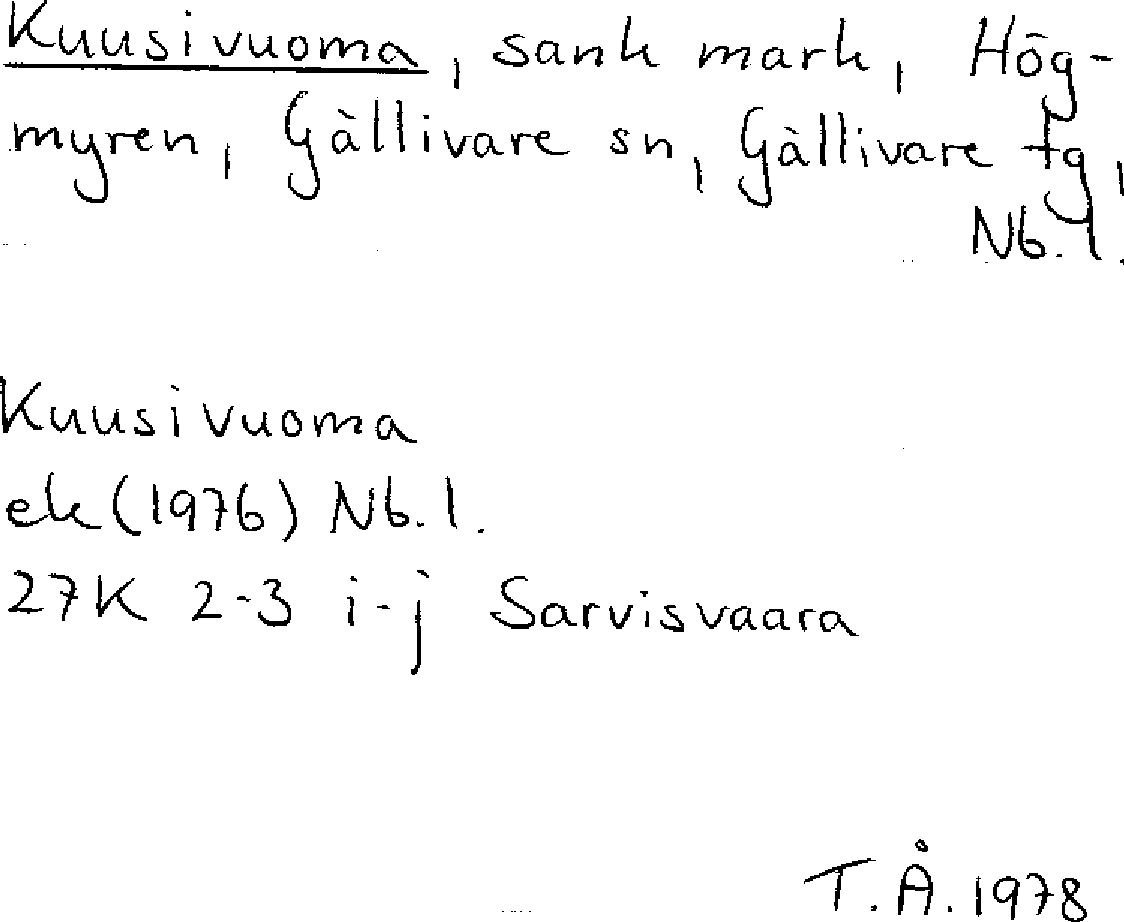 Kuusivuoma, sank mark, Hög-
myren, Gällivare sn, Gällivare tg,
Nb. l.
Kuusivuoma
ek (1976) Nb. l.
27K 2-3 i-j Sarvisvaara
T.Å. 1978